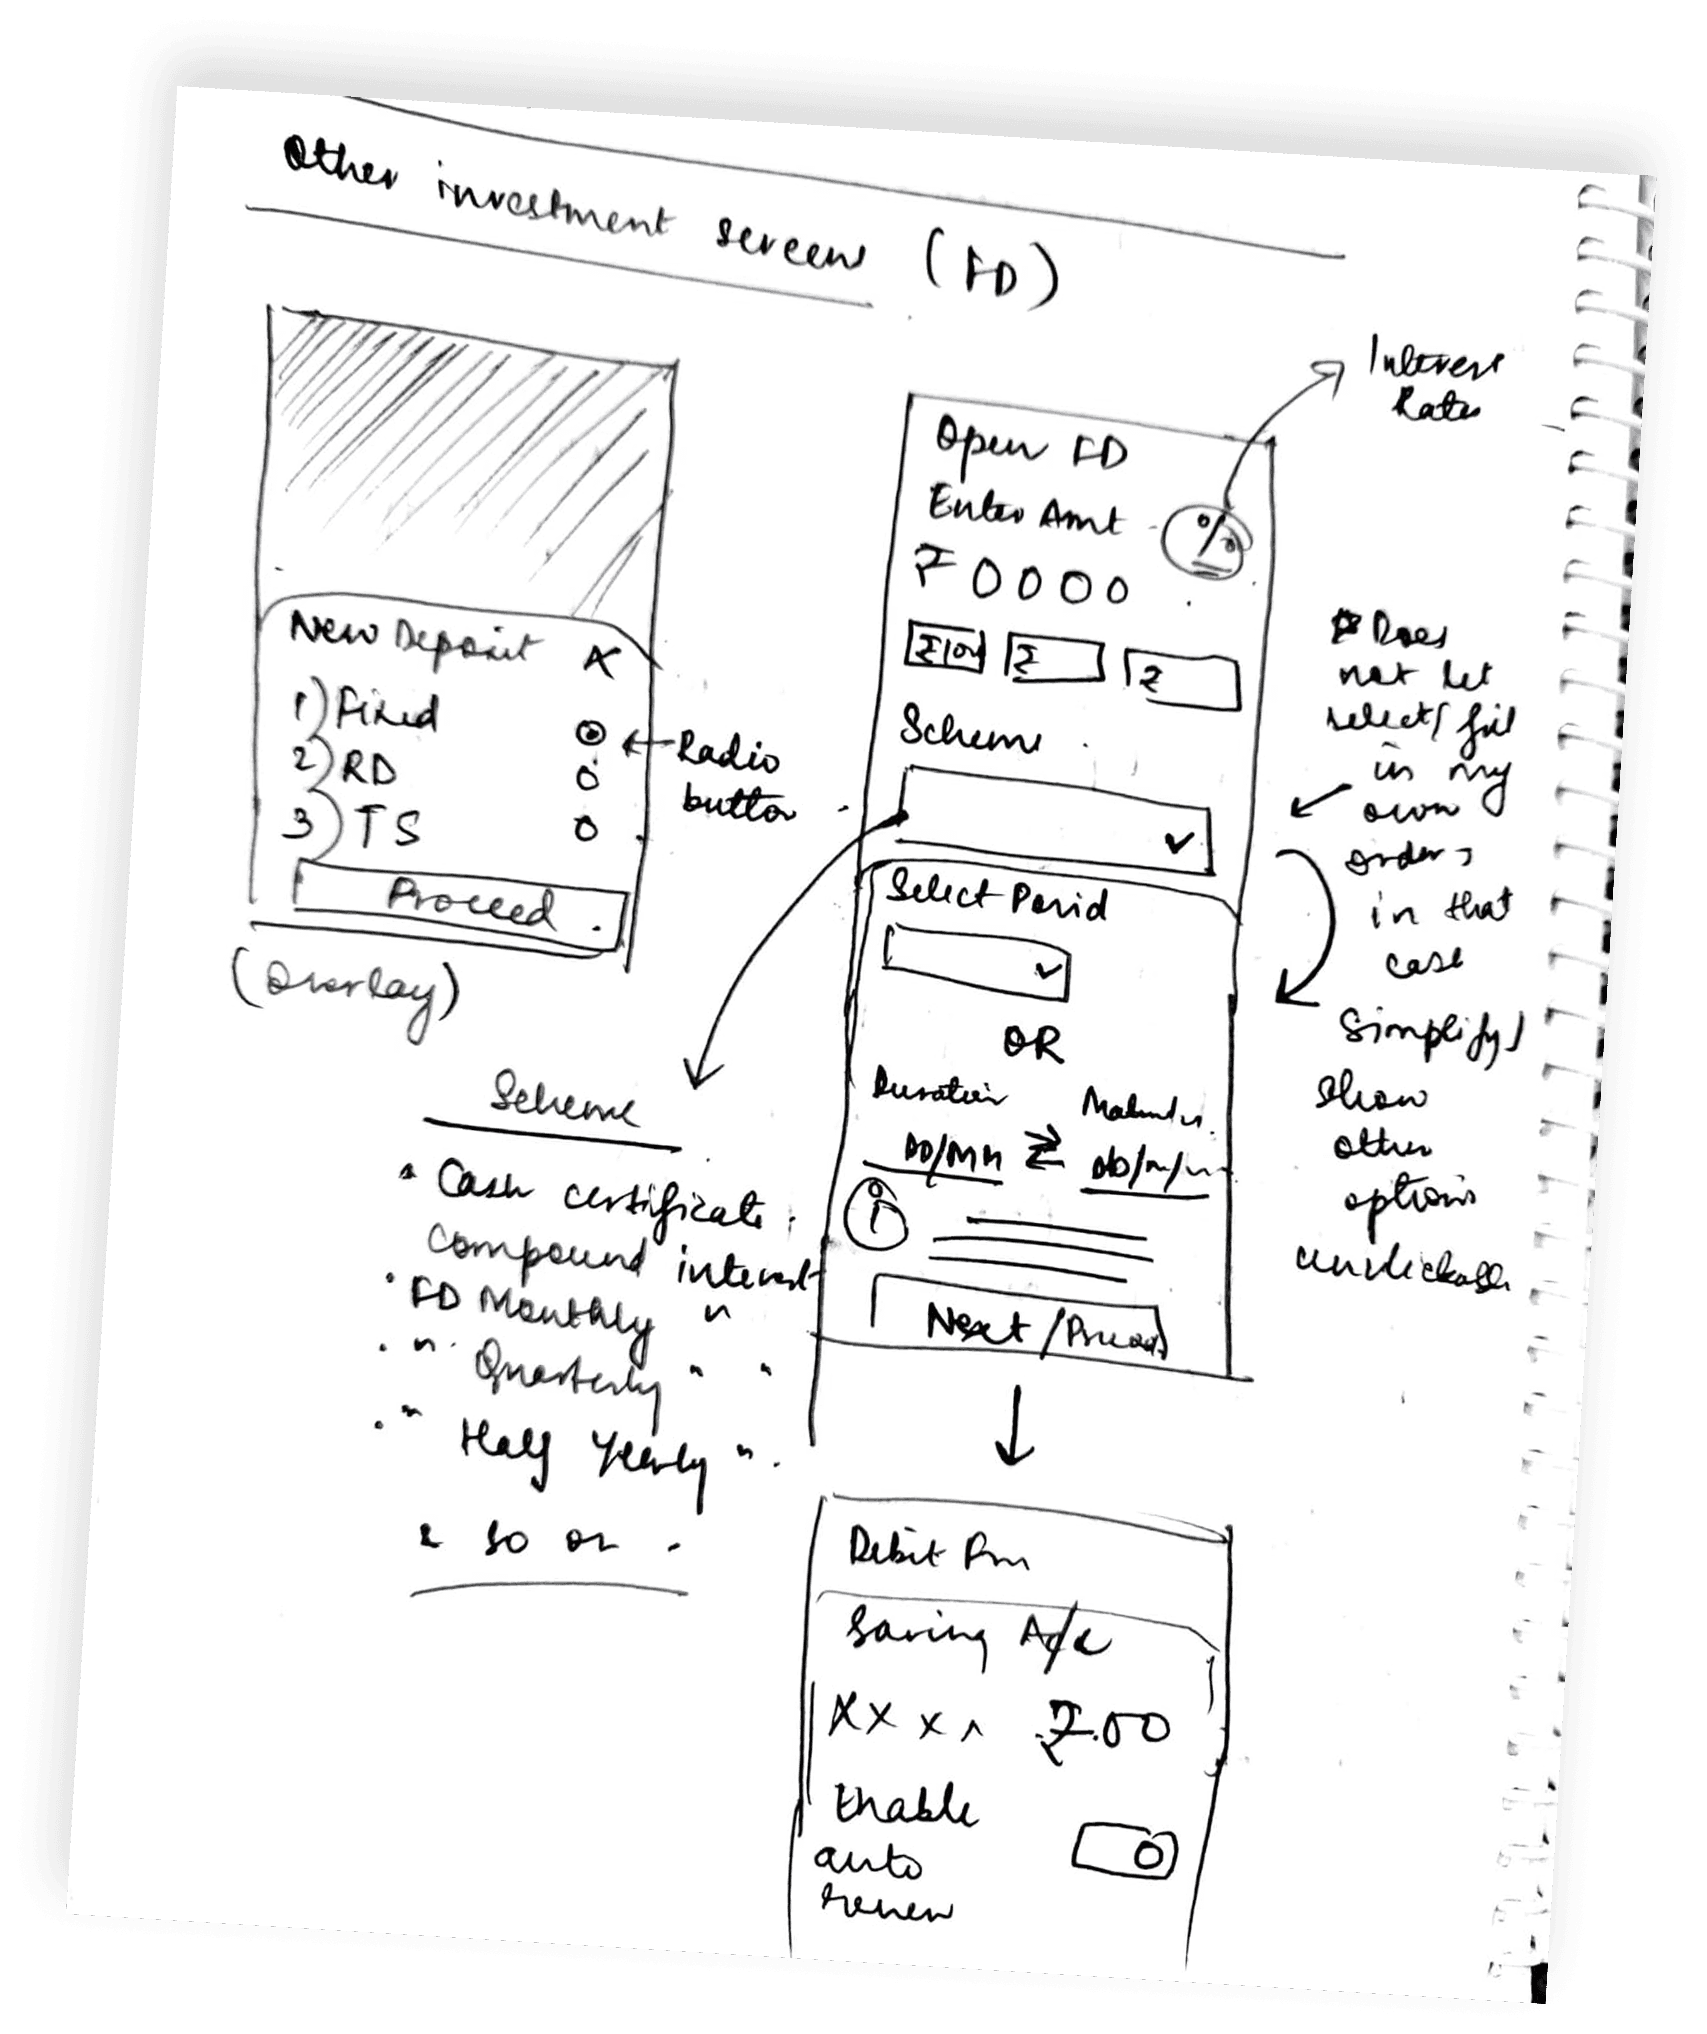 Other investment screens (FD)
New Deposit X
1) Fixed
2) RD
3) TS
Proceed
(Overlay)
← Radio
button
Interest
Rates
Open FD
Enter Amt %
₹ 0000
₹ ₹
Scheme
Select Period
OR
Duration
DD/MM ⇄
i
Next /
* Does
not let
select/fill
in my
own
order,
in that
case
Simplify/
show
other
options
unclickable
Scheme
• Cash certificate
compound interest
• FD Monthly "
• " Quarterly " "
• " Half Yearly "
& so on.
Debit
Saving A/c
XXXX ₹.00
Enable
auto
renew